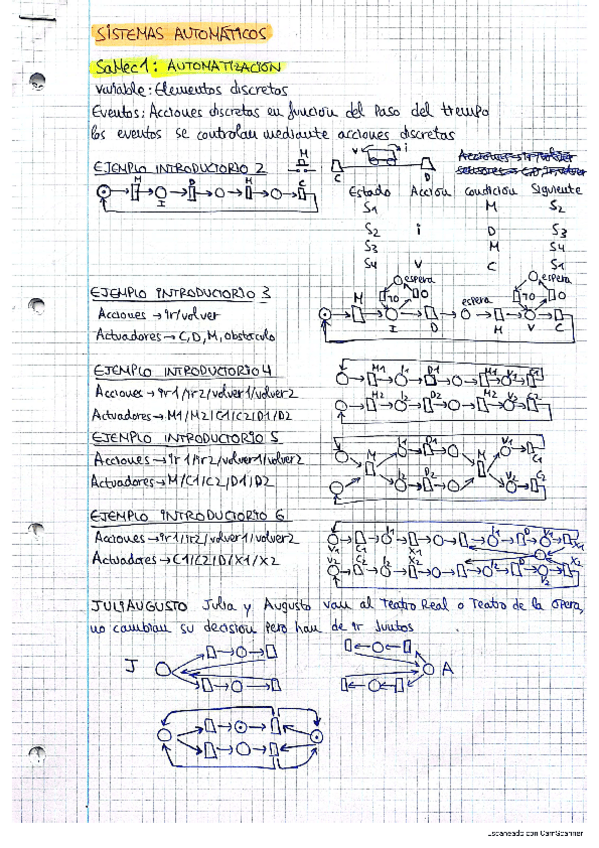 SISTEMAS AUTOMÁTICOS
SaMec1: AUTOMATIZACIÓN
Variable: Elementos discretos
Eventos: Acciones discretas en función del paso del tiempo
los eventos se controlan mediante acciones discretas
EJEMPLO INTRODUCTORIO 2
M
V i
C D
M D M C
I
Estado Acción condición Siguiente
S1 M S2
S2 i D S3
S3 M S4
S4 V C S1
EJEMPLO INTRODUCTORIO 3
Acciones → ir/volver
Actuadores → C, D, M, obstáculo
espera espera
M espera
I D M V C
EJEMPLO INTRODUCTORIO 4
Acciones → ir1/ir2/volver1/volver2
Actuadores → M1/M2/C1/C2/D1/D2
M1 I1 D1 M1 V1 C1
M2 I2 D2 M2 V2 C2
EJEMPLO INTRODUCTORIO 5
Acciones → ir1/ir2/volver1/volver2
Actuadores → M/C1/C2/D1/D2
I1 D1 V1 C1
M M
I2 D2 V2 C2
EJEMPLO INTRODUCTORIO 6
Acciones → ir1/ir2/volver1/volver2
Actuadores → C1/C2/D/X1/X2
V1 C1 X1 I1 D V1 X1
V2 C2 X2 I2 D V2 X2
JULIAUGUSTO Julia y Augusto van al Teatro Real o Teatro de la Ópera,
no cambian su decisión pero han de ir juntos
J A
Escaneado con CamScanner